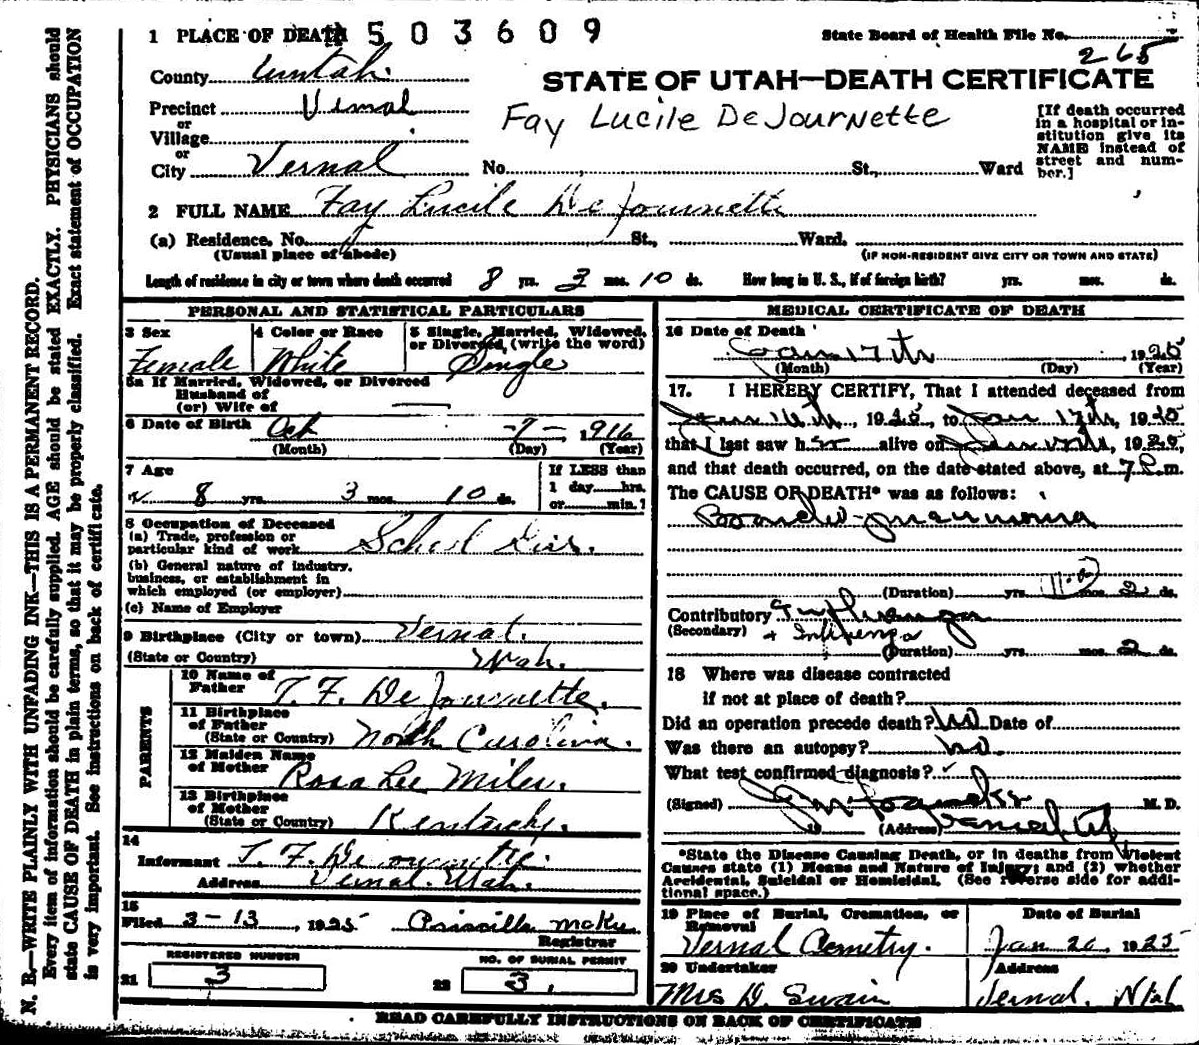 1 PLACE OF DEATH 503609
State Board of Health File No. 265
County Uintah.
STATE OF UTAH—DEATH CERTIFICATE
Precinct Vernal
or
Village
or
City Vernal No. St., Ward
Fay Lucile DeJournette
[If death occurred
in a hospital or in-
stitution give its
NAME instead of
street and num-
ber.]
2 FULL NAME Fay Lucile DeJournette
(a) Residence. No. St., Ward.
(Usual place of abode) (IF NON-RESIDENT GIVE CITY OR TOWN AND STATE)
Length of residence in city or town where death occurred 8 yrs. 3 mos. 10 ds. How long in U. S., if of foreign birth? yrs. mos. ds.
PERSONAL AND STATISTICAL PARTICULARS
3 Sex 4 Color or Race 5 Single, Married, Widowed,
or Divorced, (write the word)
Female White Single
5a If Married, Widowed, or Divorced
Husband of
(or) Wife of
6 Date of Birth Oct -7-, 1916
(Month) (Day) (Year)
7 Age If LESS than
1 day hrs.
8 yrs. 3 mos. 10 ds. or min.?
8 Occupation of Deceased
(a) Trade, profession or
particular kind of work School
(b) General nature of industry,
business, or establishment in
which employed (or employer)
(c) Name of Employer
9 Birthplace (City or town) Vernal.
(State or Country) Utah.
PARENTS
10 Name of
Father T. F. DeJournette.
11 Birthplace
of Father
(State or Country) North Carolina.
12 Maiden Name
of Mother Rosa Lee Miles.
13 Birthplace
of Mother
(State or Country) Kentucky.
14
Informant T. F. DeJournette.
Address Vernal. Utah.
15
Filed 3-13, 1925 Priscilla
Registrar
REGISTERED NUMBER NO. OF BURIAL PERMIT
21 3 22 3.
MEDICAL CERTIFICATE OF DEATH
16 Date of Death
Jan 17th 1925
(Month) (Day) (Year)
17. I HEREBY CERTIFY, That I attended deceased from
Jan 16th, 1925, to Jan 17th, 1925
that I last saw her alive on Jan, 1925,
and that death occurred, on the date stated above, at 7 P.m.
The CAUSE OF DEATH* was as follows:
Broncho-pneumonia
(Duration) yrs. mos. 2 ds.
Contributory Influenza
(Secondary) + Influenza
(Duration) yrs. mos. 2 ds.
18 Where was disease contracted
if not at place of death?
Did an operation precede death? No Date of
Was there an autopsy? no.
What test confirmed diagnosis?
(Signed) M. D.
19 (Address) Vernal, Ut
*State the Disease Causing Death, or in deaths from Violent
Causes state (1) Means and Nature of Injury; and (2) whether
Accidental, Suicidal or Homicidal. (See reverse side for addi-
tional space.)
19 Place of Burial, Cremation, or
Removal Date of Burial
Vernal Cemetry. Jan 20, 1925
20 Undertaker Address
Mrs D. Swain Vernal. Utah
READ CAREFULLY INSTRUCTIONS ON BACK OF CERTIFICATE
N. B.—WRITE PLAINLY WITH UNFADING INK—THIS IS A PERMANENT RECORD.
Every item of information should be carefully supplied. AGE should be stated EXACTLY. PHYSICIANS should
state CAUSE OF DEATH in plain terms, so that it may be properly classified. Exact statement of OCCUPATION
is very important. See instructions on back of certificate.